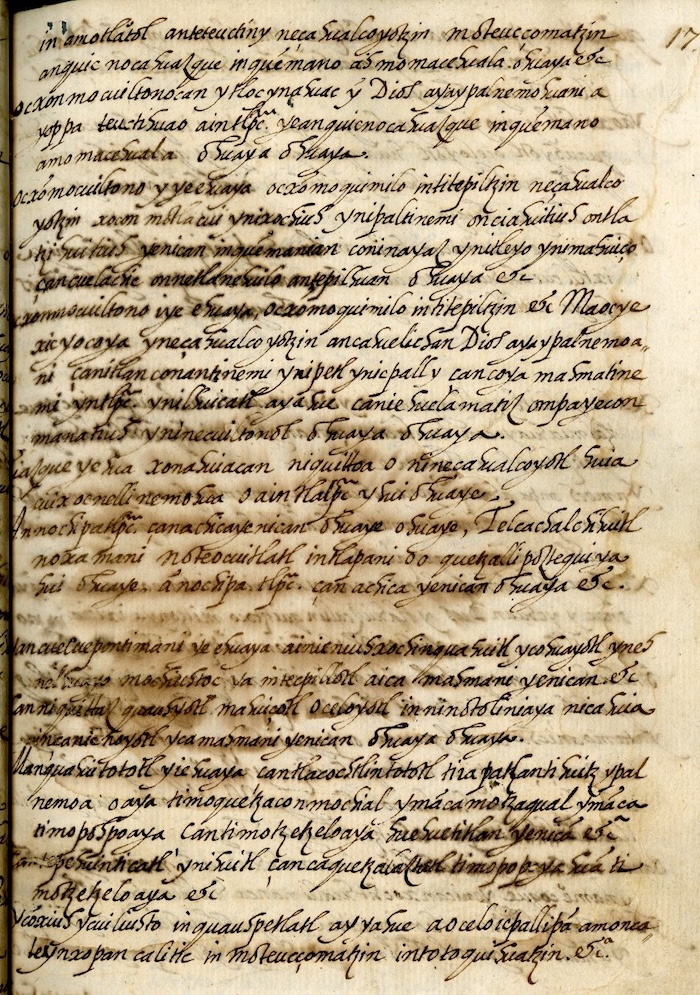 17
in amotlatol anteteuctiny neçahualcoyotzin moteucçomatzin
anquicnocahuazque inquemano ahmomacehuala ohuaya etc
ocxonmocuiltonocan ytlocynahuac y Dios ayaypalnemohuani a
yoppa teuctihuao ain tlpc. yeanquicnocahuazque inquemano
amomacehuala ohuaya ohuaya.
Ocxōmocuiltono y yeehuaya ocxōmoquimilo intitepiltzin neçahualco
yotzin xocon motlacui ynixochiuh ynipaltinemi onciahuitiuh ontla
tzihuitiuh yenican inquemanian coninayaz ynitleyo ynimahuiço
çancuelachic onnetlanehuilo antepilhuan ohuaya etc
ocxonmocuiltono iye ehuaya, ocxōmoquimilo intitepiltzin etc Maocye
xicyocoya yneçahualcoyotzin ancahuelichan Dios ayaypalnemoa,
ni çanitlan conantinemi ynipetl ynicpall y cancoya mahmatine
mi yntlpc. ynilhuicatl ayahue canie huelamatiz ompayecon
manatiuh yninecuiltonol ohuaya ohuaya.
yehua xonahuiacan niquittoa o nineçahualcoyotl huia
cuix oc nelli nemohua o ain tlaltpc yhui ohuaye
Annochipa tlpc. çan achica yenican ohuaye ohuaye, Telcachalchihuitl
noxamani noteocuitlatl intlapani oo quetzalli poztequiya
hui ohuaye. anochipa tlpc. çan achica yenican ohuaya etc.
cuelcuepontimani ye ehuaya ainieniuhxochinquahuitl ycohuayotl yneh
mochiuhtoc ya intecpillotl aica mahmani yenican. etc
quauhyotl mahuiçotl oceloyotl in ninotoliniaya nicahuia
ycamahmani yenican ohuaya ohuaya.
Manquahuitototl yiehuaya cantlacochtlintototl tiyapatlantihuitz ypal
nemoa o aya timoquetzaconmochial ymacamotzaqual ymaca
timopohpoaya Cantimotzetzeloaya huehuetitlan yenica etc
ynihuitl çancaquetzal timopopoyahua ti
motzetzeloaya etc
ycoxiuh ycuiliuhto inquauhpetlatl ayyahue a oceloicpallipā amonca
teynxopan calitic in moteucçomatzin intotoquihuatzin. etc.